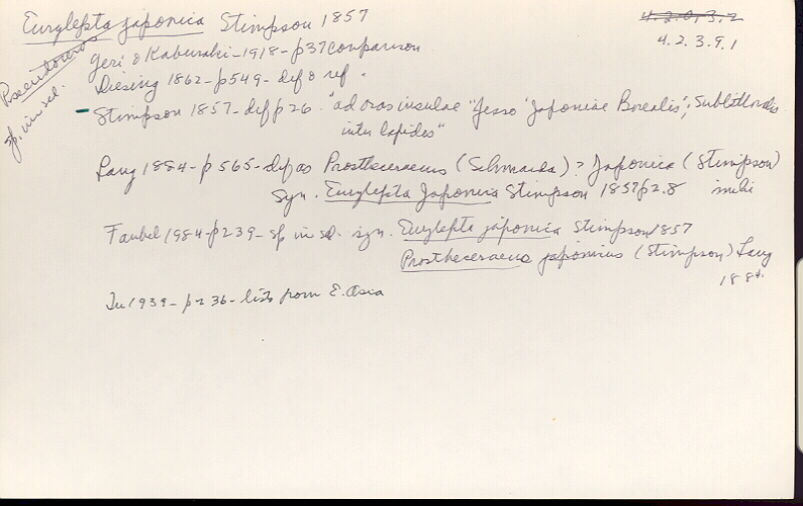 Eurylepta japonica Stimpson 1857
4.2.0.3.2
4.2.3.9.1
Pseudoceros
sp. in sed.
Yeri & Kaburaki-1918-p37 comparison
Diesing 1862-p549-def & ref.
- Stimpson 1857-def p26. "ad oras insulae "Jesso" Japoniae Borealis"; Sublittoralis
inter lapides"
Lang 1884-p565-def as Prostheceraeus (Schmarda)? Japonica (Stimpson)
Syn. Eurylepta Japonica Stimpson 1857 p2.8
Faubel 1984-p239-sp in sed. syn. Eurylepta japonica Stimpson 1857
Prostheceraeus japonicus (Stimpson) Lang
1884.
Tu 1939-p236-lists from E. Asia